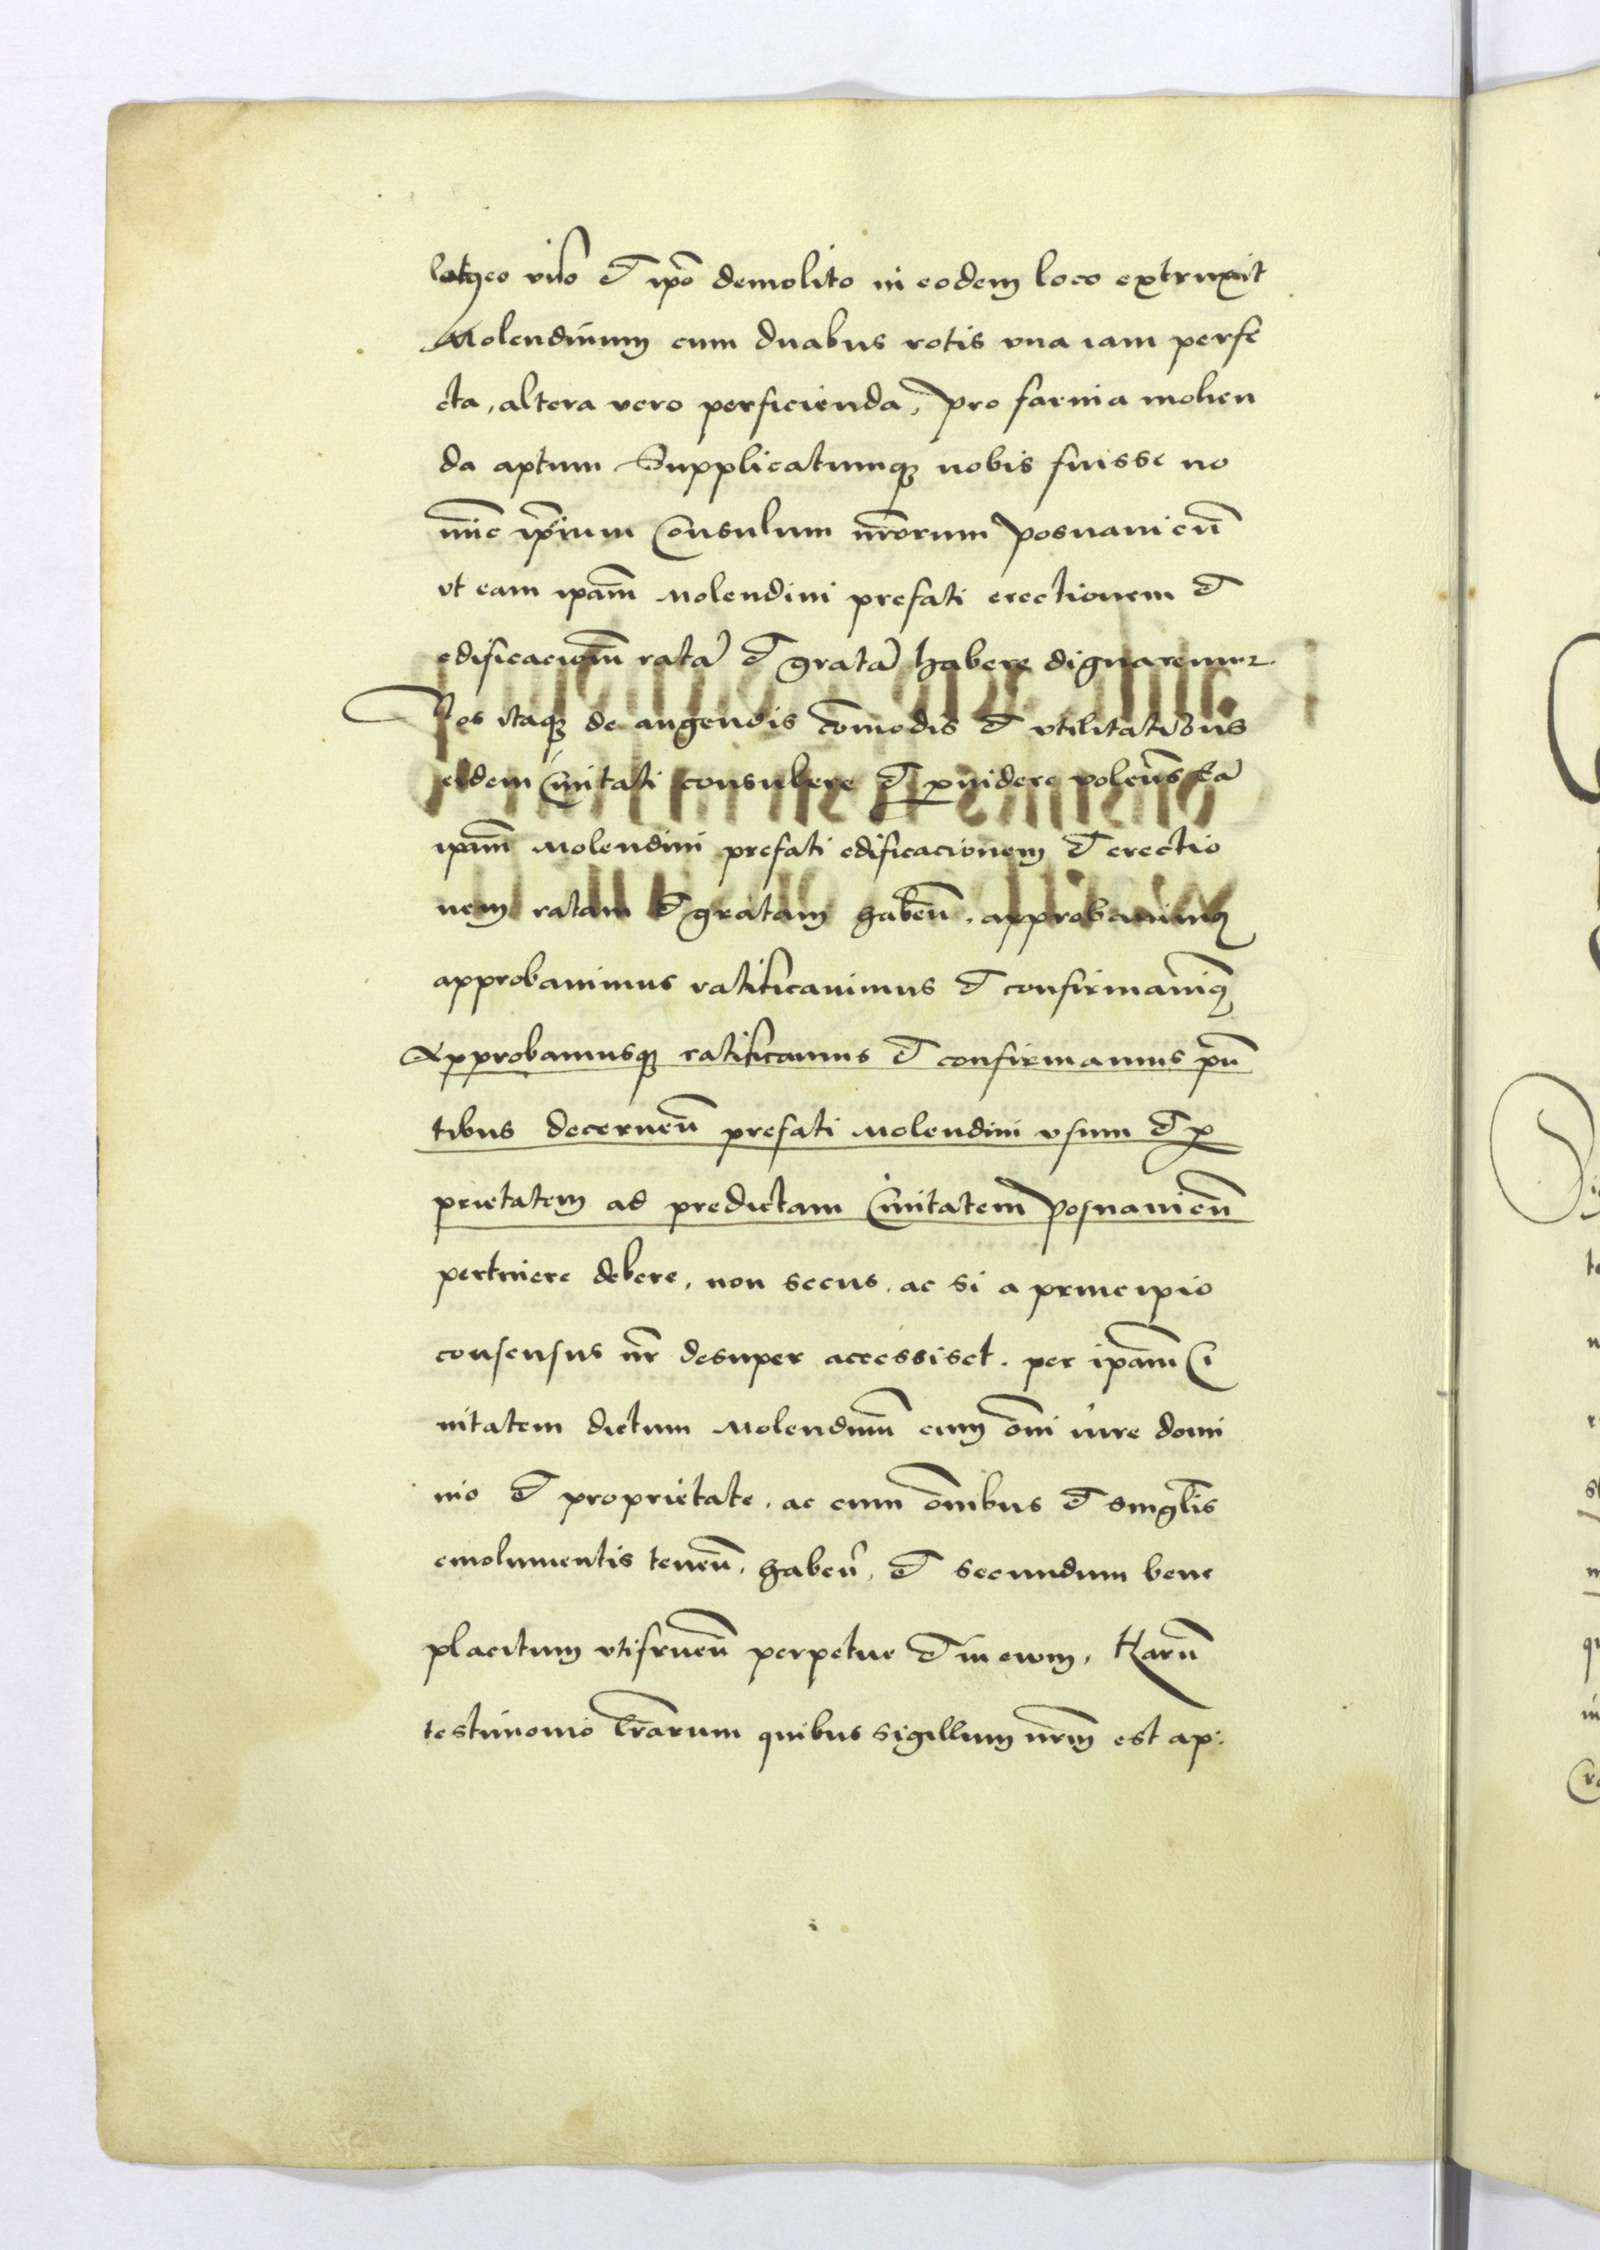 viso et ip̄o demolito in eodem loco extruxit
Molendinum cum duabus rotis vna iam perfe
cta, altera vero perficienda, pro farina molien
da aptum Supplicatumq̨ nobis fuisse no
mine ip̄orum Consulum nr̄orum Posnanien̄
vt eam ip̄am Molendini prefati erectionem et
edificacionē ratā et gratā habere dignaremur.
Nos itaq̨ de augendis com̄odis et vtilitatibus
eidem Ciuitati consulere et ꝓuidere volen̄s eā
ip̄am Molendini prefati edificacionem et erectio
nem ratam et gratam haben̄, approbauimꝰ
approbauimus ratificauimus et confirmauimꝰ
Approbamusq̨ ratificamus et confirmamus pn̄
tibus decernen̄ prefati Molendini vsum et ꝓ
prietatem ad predictam Ciuitatem Posnanien̄
pertinere debere, non secus, ac si a principio
consensus nr̄ desuper accessisset. per ip̄am Ci
uitatem dictum Molendinū cum om̄i iure domi
nio et proprietate, ac cum om̄ibus et singl̄is
emolumentis tenen̄, haben̄, et secundum bene
placitum vtifruen̄ perpetue et in euum, Harū
testimonio lr̄arum quibus sigillum nr̄m est ap: